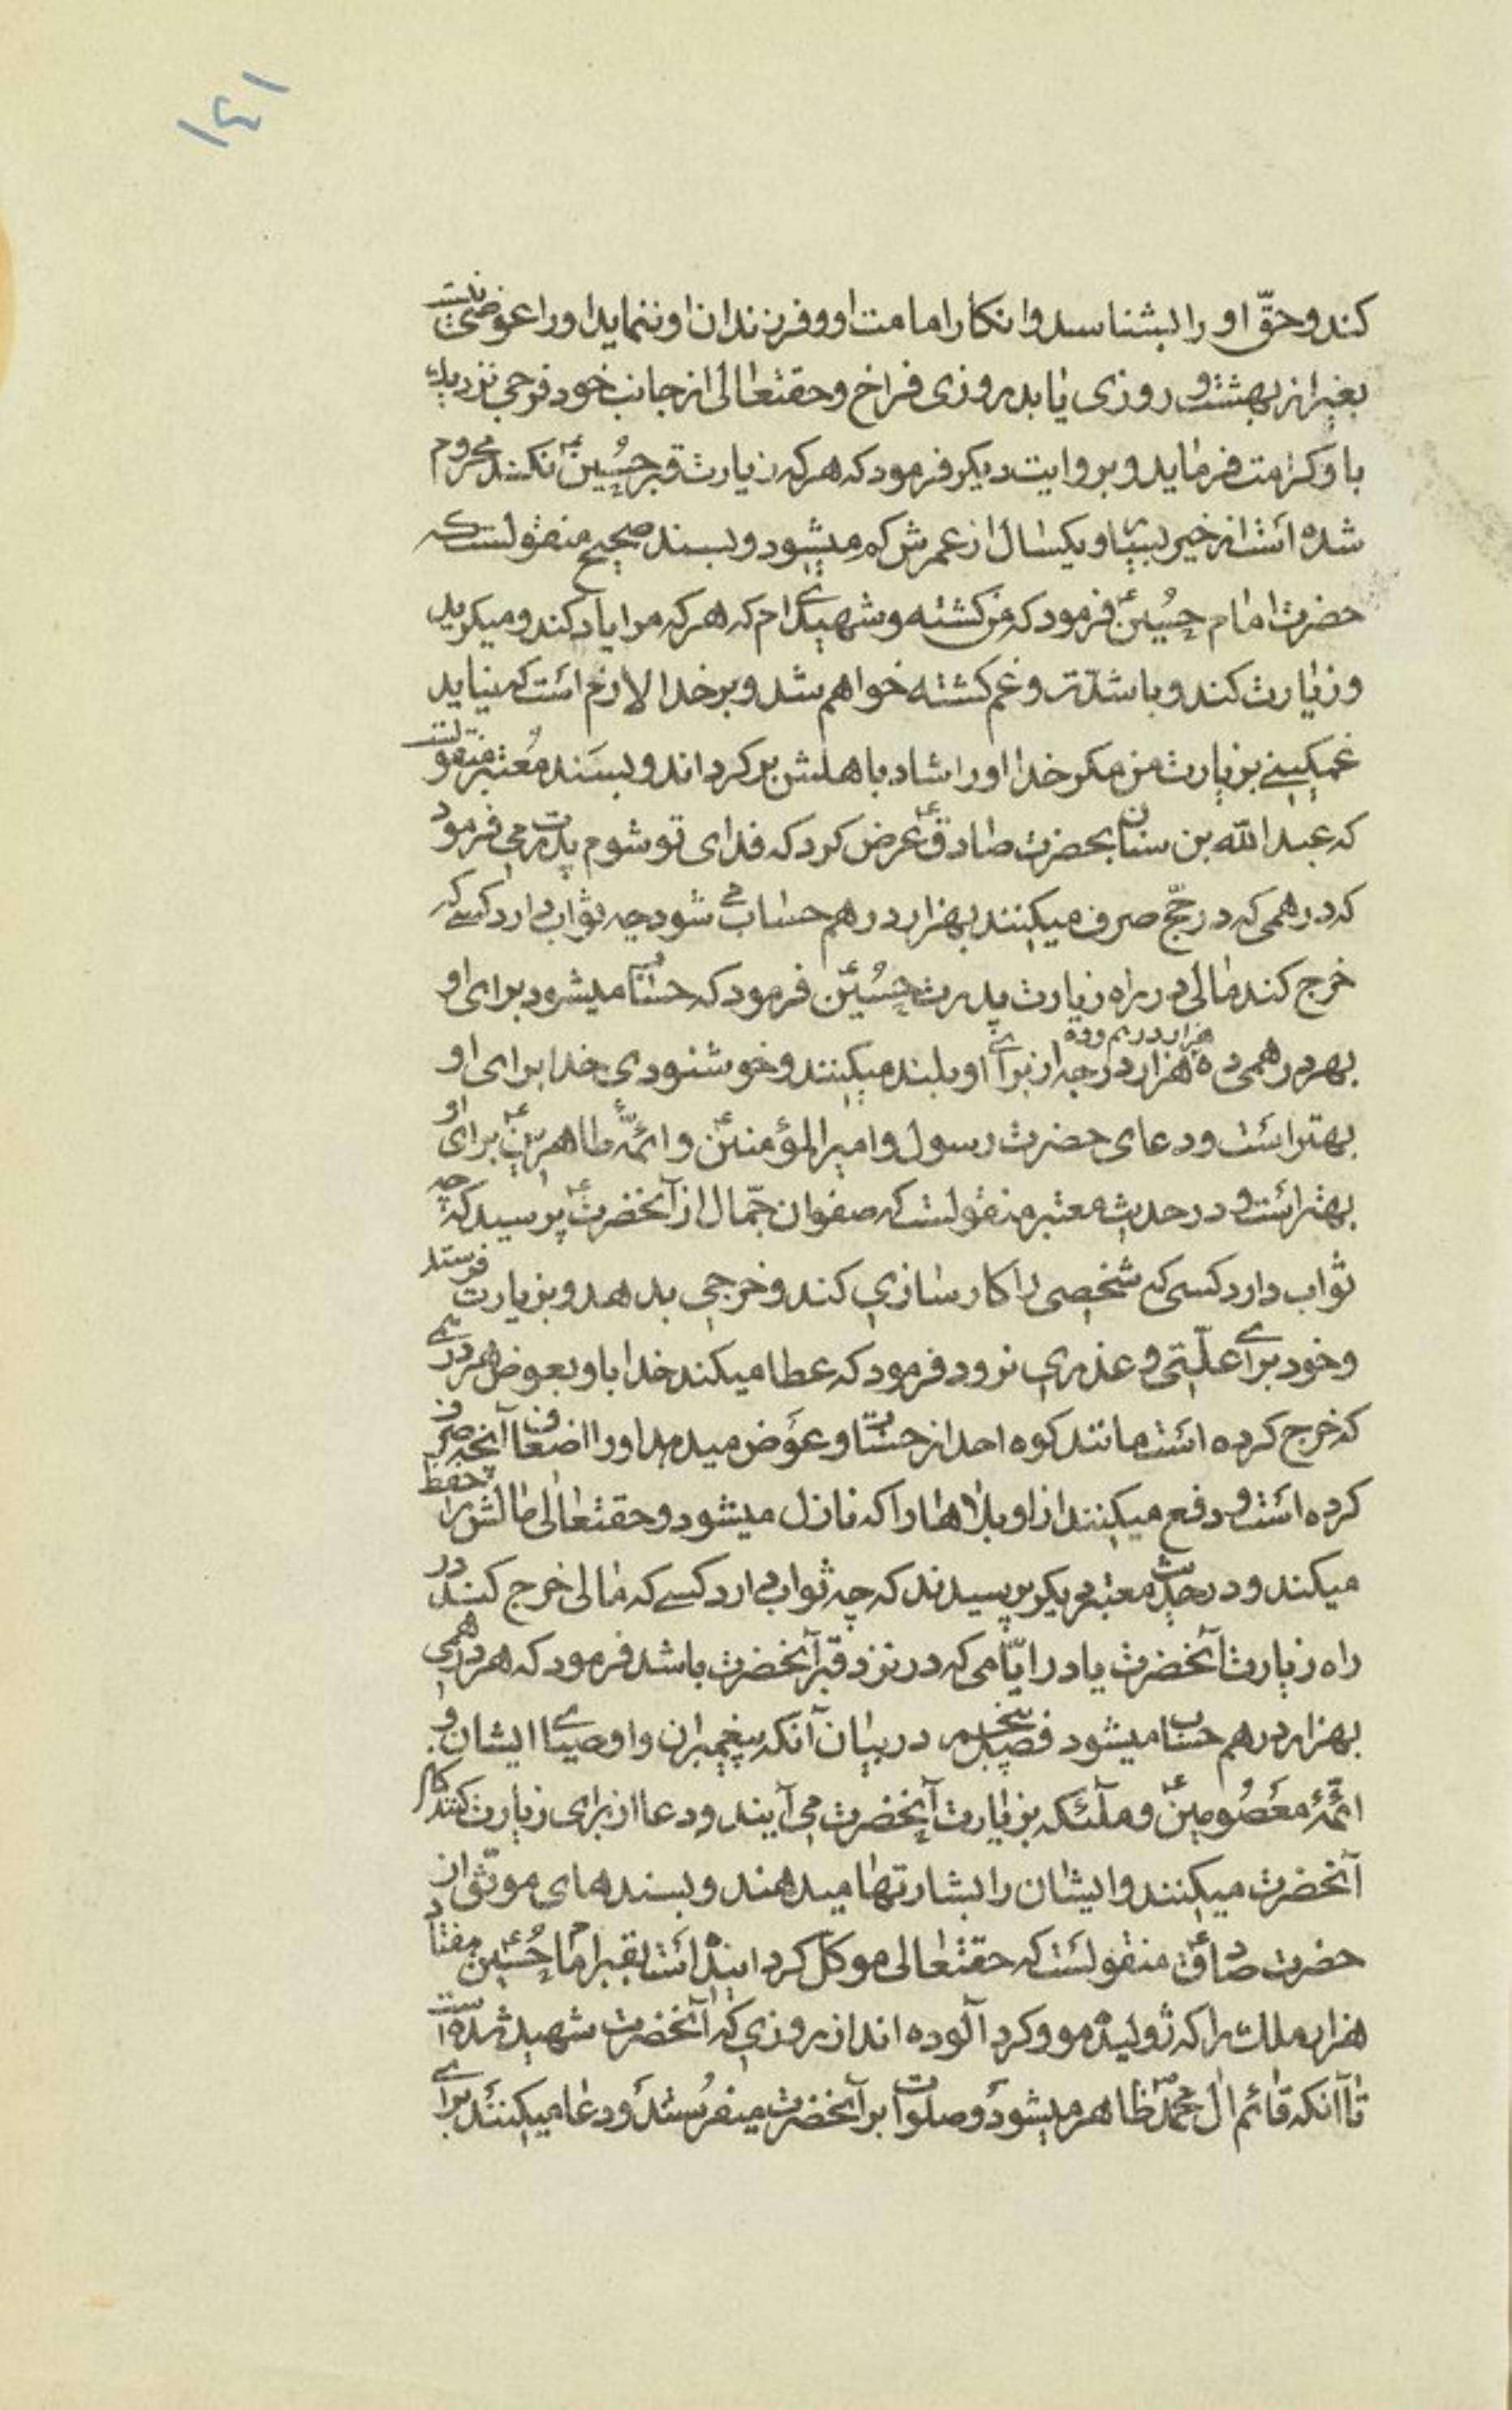 ١٤١
کند و حقّ او را بشناسد و انکار امامت او و فرزندان او ننماید او را عوضی نیست
بغیر از بهشت و روزی یابد روزی فراخ و حقتعالی از جانب خود فرجی نزدیک
باو کرامت فرماید و بروایت دیکر فرمود که هر که زیارت قبر حُسینؑ نکند محروم
شده است از خیر بسیار و یکسال از عمرش کم میشود و بسند صحیح منقولست که
حضرت امام حُسینؑ فرمود که من کشته و شهید کریه‌ام که هر که مرا یاد کند و میکرید
و زیارت کند و با شدّت و غم کشته خواهم شد و بر خدا لازم است که نیاید
غمکینی بزیارت من مکر خدا او را شاد باهلش بر کرداند و بسَند مُعتبر منقولست
که عبد الله بن سنان بحضرت صادقؑ عرض کرد که فدای تو شوم پدرت می فرمود
که درهمی که در حجّ صرف میکنند بهزار درهم حساب می شود چه ثواب دارد کسی که
خرج کند مالی در راه زیارت پدرت حُسینؑ فرمود که حساب میشود برای او
بهر درهمی ده هزار هزار درهم و ده هزار درجه از برای او بلند میکنند و خوشنودی خدا برای او
بهتر است و دعای حضرت رسول و امیر المؤمنینؑ و ائمّهٔ طاهرینؑ برای او
بهتر است و در حدیث معتبر منقولست که صفوان جمّال از آنحضرتؑ پرسید که چه
ثواب دارد کسی که شخصی را کارسازی کند و خرجی بدهد و بزیارت فرستد
و خود برای علّتی و عذری نرود فرمود که عطا میکند خدا باو بعوض هر درهمی
که خرج کرده است مانند کوه احد از حسنات و عَوض میدهد او را اضعاف آنچه صرف
کرده است و دفع میکنند از او بلاها را که نازل میشود و حقتعالی مالش را حفظ
میکند و در حدیث معتبر دیکر پرسیدند که چه ثواب دارد کسی که مالی خرج کند در
راه زیارت آنحضرت یا در ایّامی که در نزد قبر آنحضرت باشد فرمود که هر درهمی
بهزار درهم حساب میشود فصل پنجم در بیان آنکه پیغمبران و اوصیای ایشان و
ائمّهٔ معصُومینؑ و ملآئکه بزیارت آنحضرت می آیند و دعا از برای زیارت کنندکان
آنحضرت میکنند و ایشان را بشارتها میدهند و بسندهای موثّق از
حضرت صادقؑ منقولست که حقتعالی موکّل کردانیده است بقبر امام حُسینؑ هفتاد
هزار ملک را که ژولیده مو و کرد آلوده اند از روزی که آنحضرت شهید شده است
تا آنکه قائم ال محمّدؐ ظاهر میشود و صلوات بر آنحضرت میفرُستند و دعا میکنند برای